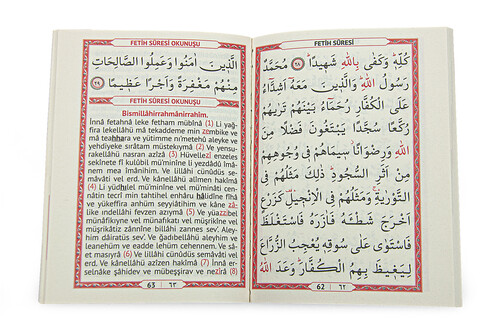 FETİH SÛRESİ
كُلِّهِ وَكَفٰى بِاللّٰهِ شَهٖيدًا ﴿٢٨﴾ مُحَمَّدٌ
رَسُولُ اللّٰهِ وَالَّذٖينَ مَعَهُٓ اَشِدَّٓاءُ
عَلَى الْكُفَّارِ رُحَمَٓاءُ بَيْنَهُمْ تَرٰيهُمْ
رُكَّعًا سُجَّدًا يَبْتَغُونَ فَضْلًا مِنَ
اللّٰهِ وَرِضْوَانًا سٖيمَاهُمْ فٖي وُجُوهِهِمْ
مِنْ اَثَرِ السُّجُودِ ذٰلِكَ مَثَلُهُمْ فِي
التَّوْرٰيةِ وَمَثَلُهُمْ فِي الْاِنْجٖيلِ كَزَرْعٍ
اَخْرَجَ شَطْـَٔهُ فَاٰزَرَهُ فَاسْتَغْلَظَ
فَاسْتَوٰى عَلٰى سُوقِهٖ يُعْجِبُ الزُّرَّاعَ
لِيَغٖيظَ بِهِمُ الْكُفَّارَ وَعَدَ اللّٰهُ
62 ٦٢
FETİH SÛRESİ OKUNUŞU
الَّذٖينَ اٰمَنُوا وَعَمِلُوا الصَّالِحَاتِ
مِنْهُمْ مَغْفِرَةً وَاَجْرًا عَظٖيمًا ﴿٢٩﴾
FETİH SÛRESİ OKUNUŞU
Bismillâhirrahmânirrahîm.
İnnâ fetahnâ leke fetham mübînâ (1) Li yağ-
fira lekellâhü mâ tekaddeme min zembike ve
mâ teahhara ve yütimme ni'metehû aleyke ve
yehdiyeke sırâtam müstekymâ (2) Ve yensu-
rakellâhü nasran azîzâ (3) Hüvellezî enzeles
sekînete fî kulûbil mü'minîne li yezdâdû îmâ-
nem mea îmânihim. Ve lillâhi cünûdüs semâ-
vâti vel erd. Ve kânellâhü alîmen hakîmâ
(4) Li yüdhılel mü'minîne vel mü'minâti cen-
nâtin tecrî min tahtihel enhâru hâlidîne fîhâ
ve yükeffira anhüm seyyiâtihim ve kâne zâ-
like indellâhi fevzen azîymâ (5) Ve yüazzibel
münâfikıyne vel münâfikâti vel müşrikîne vel
müşrikâtiz zânnîne billâhi zannes sev'. Aley-
him dâiratüs sev'. Ve ğadıbellâhü aleyhim ve
leanehüm ve eadde lehüm cehennem. Ve sâ-
et masıyrâ (6) Ve lillâhi cünûdüs semâvâti vel
erd. Ve kânellâhü azîzen hakîmâ (7) İnnâ er-
selnâke şâhidev ve mübeşşirav ve nezîrâ (8)
63 ٦٣